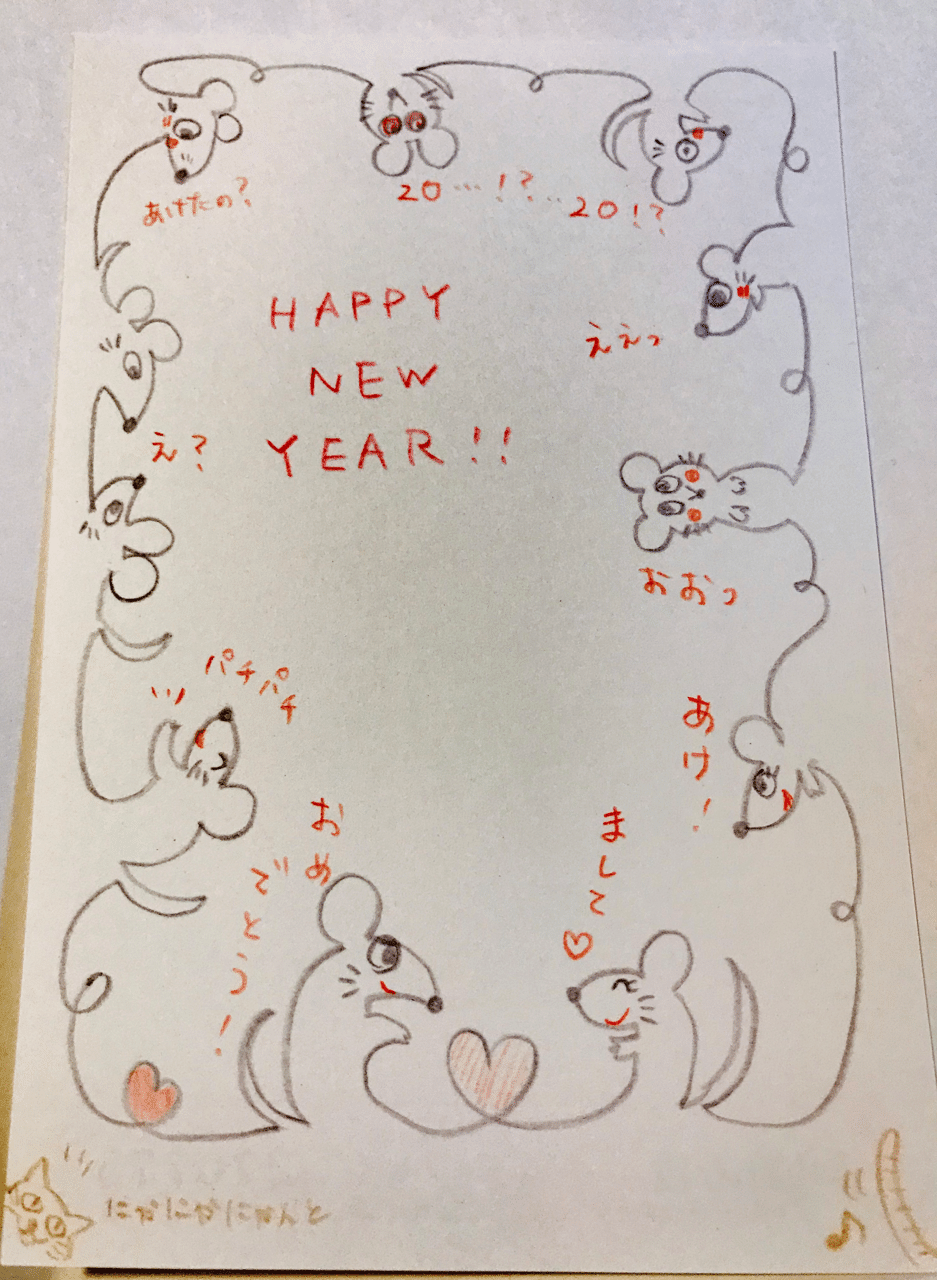 あけたの?
20…!?
…20!?
HAPPY
NEW
YEAR!!
ええっ
え?
おおっ
パチパチ
あけ!
まして♡
おめ
でとう!
にゃにゃにゃんと